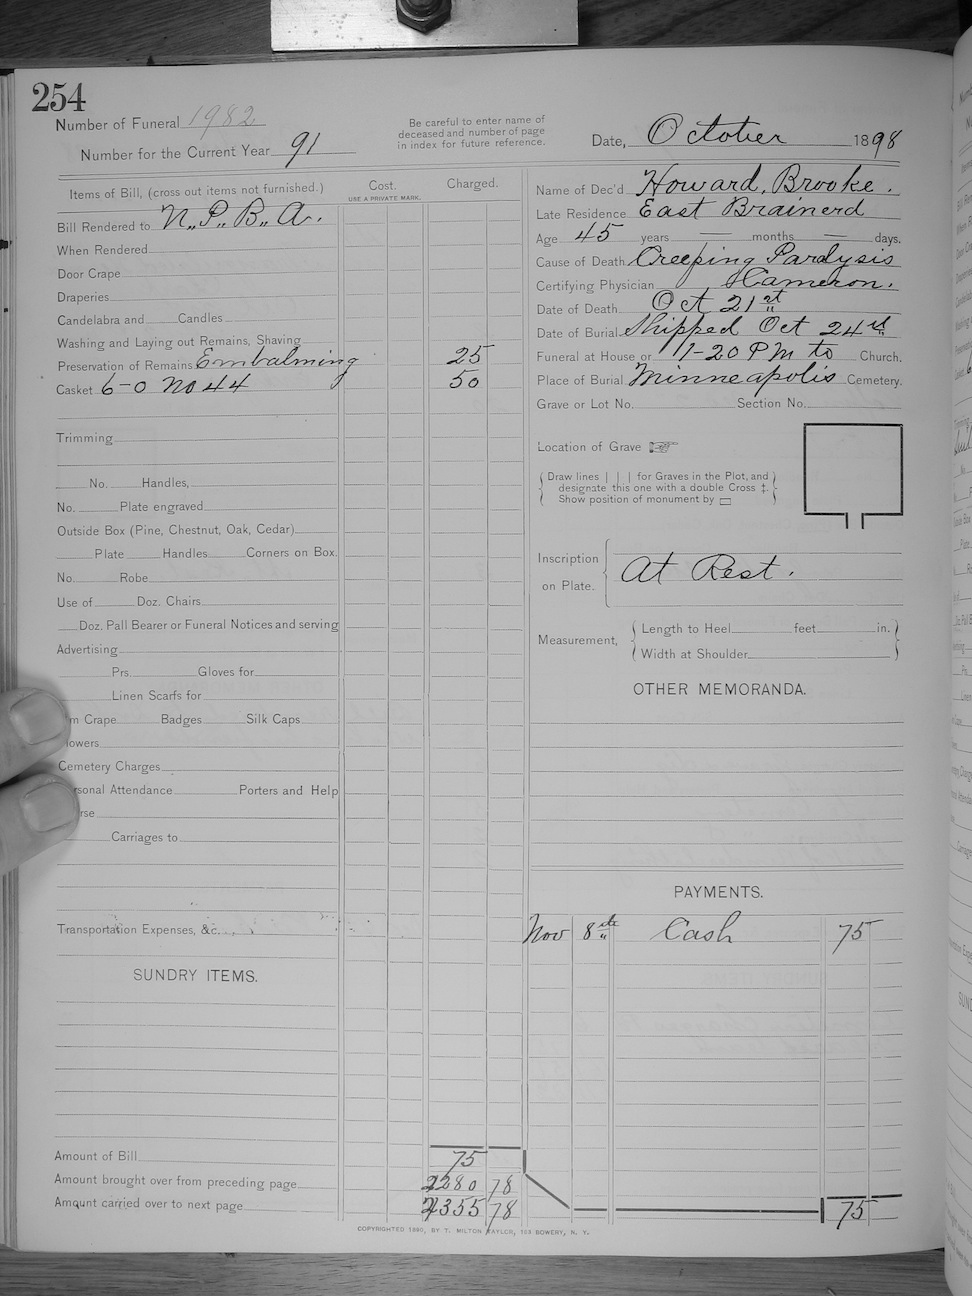 254
Number of Funeral 1982
Number for the Current Year 91
Be careful to enter name of
deceased and number of page
in index for future reference.
Date, October 1898
Items of Bill, (cross out items not furnished.) Cost. Charged.
USE A PRIVATE MARK.
Bill Rendered to N.P.B.A.
When Rendered
Door Crape
Draperies
Candelabra and Candles
Washing and Laying out Remains, Shaving
Preservation of Remains Embalming 25
Casket 6-0 No 44 50
Trimming
No. Handles,
No. Plate engraved
Outside Box (Pine, Chestnut, Oak, Cedar)
Plate Handles Corners on Box.
No. Robe
Use of Doz. Chairs
Doz. Pall Bearer or Funeral Notices and serving
Advertising
Prs. Gloves for
Linen Scarfs for
m Crape Badges Silk Caps
lowers
Cemetery Charges
rsonal Attendance Porters and Help
rse
Carriages to
Transportation Expenses, &c.
SUNDRY ITEMS.
Amount of Bill 75
Amount brought over from preceding page 2280 78
Amount carried over to next page 2355 78
Name of Dec'd Howard, Brooke.
Late Residence East Brainerd
Age 45 years — months — days.
Cause of Death Creeping Paralysis
Certifying Physician Hameron.
Date of Death Oct 21st
Date of Burial Shipped Oct 24th
Funeral at House or 11-20 PM to Church.
Place of Burial Minneapolis Cemetery.
Grave or Lot No. Section No.
Location of Grave
Draw lines | | | for Graves in the Plot, and
designate this one with a double Cross ‡.
Show position of monument by ▭
Inscription
on Plate.
At Rest.
Measurement,
Length to Heel feet in.
Width at Shoulder
OTHER MEMORANDA.
PAYMENTS.
Nov 8th Cash 75
75
COPYRIGHTED 1890, BY T. MILTON TAYLOR, 163 BOWERY, N. Y.